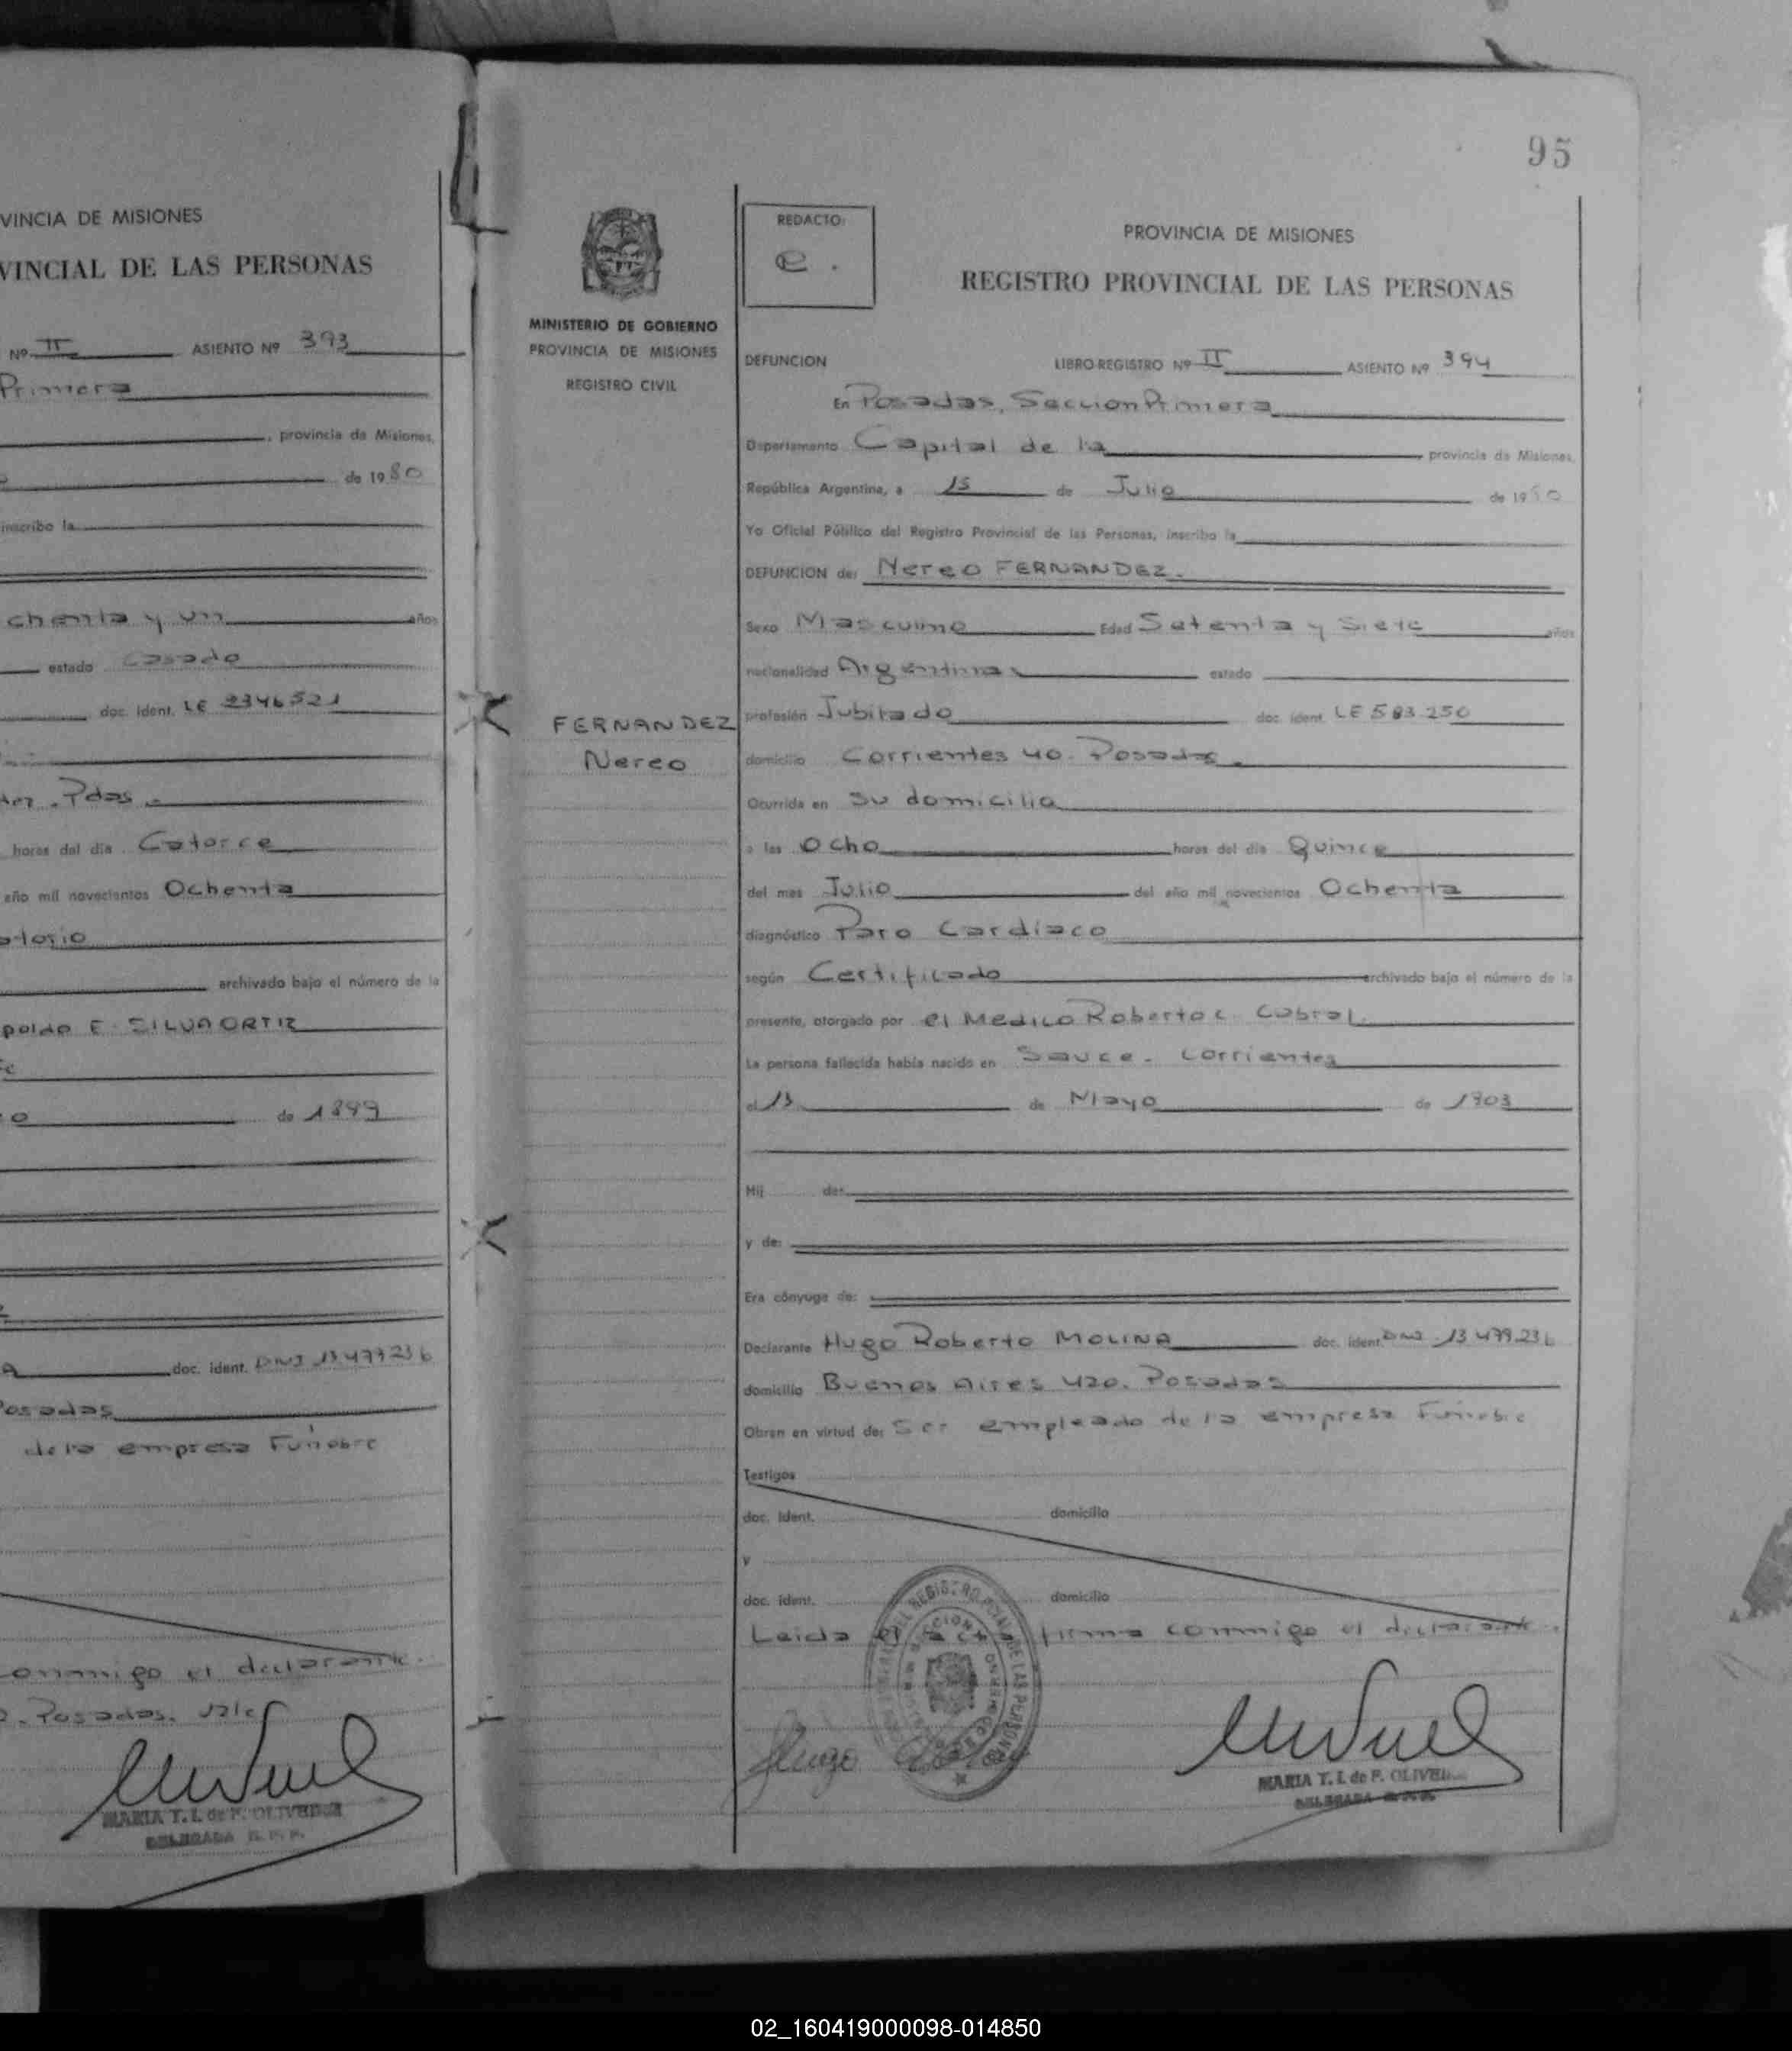 VINCIA DE MISIONES
VINCIAL DE LAS PERSONAS
Nº II ASIENTO Nº 393
Primera
, provincia de Misiones,
de 1980
inscribo la
chenta y un años
estado Casado
doc. ident. LE 2346521
Pdas.
horas del día Catorce
año mil novecientos Ochenta
archivado bajo el número de la
poldo E. SILVA ORTIZ
de 1899
doc. ident. DNI 13477236
Posadas
de la empresa Funebre
conmigo el declarante.
Posadas.
MARIA T. I. de F. OLIVEIRA
DELEGADA R. P. P.
95
MINISTERIO DE GOBIERNO
PROVINCIA DE MISIONES
REGISTRO CIVIL
FERNANDEZ
Nereo
REDACTO:
e.
PROVINCIA DE MISIONES
REGISTRO PROVINCIAL DE LAS PERSONAS
DEFUNCION LIBRO-REGISTRO Nº II ASIENTO Nº 394
En Posadas, Seccion Primera
Departamento Capital de la provincia de Misiones,
República Argentina, a 15 de Julio de 1980
Yo Oficial Público del Registro Provincial de las Personas, inscribo la
DEFUNCION de: Nereo FERNANDEZ.
Sexo Masculino Edad Setenta y Siete años
nacionalidad Argentina estado
profesión Jubilado doc. ident. LE 583.250
domicilio Corrientes 40. Posadas.
Ocurrida en su domicilio
a las Ocho horas del día Quince
del mes Julio del año mil novecientos Ochenta
diagnóstico Paro Cardiaco
según Certificado archivado bajo el número de la
presente, otorgado por el Medico Roberto C. Cabral.
La persona fallecida había nacido en Sauce. Corrientes
el 13 de Mayo de 1903
Hij de:
y de:
Era cónyuge de:
Declarante Hugo Roberto MOLINA doc. ident. DNI 13 479.236
domicilio Buenos Aires 420. Posadas
Obran en virtud de: Ser empleado de la empresa Funebre
Testigos
doc. ident. domicilio
y
doc. ident. domicilio
Leida el acta firma conmigo el declarante.
Hugo
MARIA T. I. de F. OLIVEIRA
DELEGADA R. P. P.
02_160419000098-014850